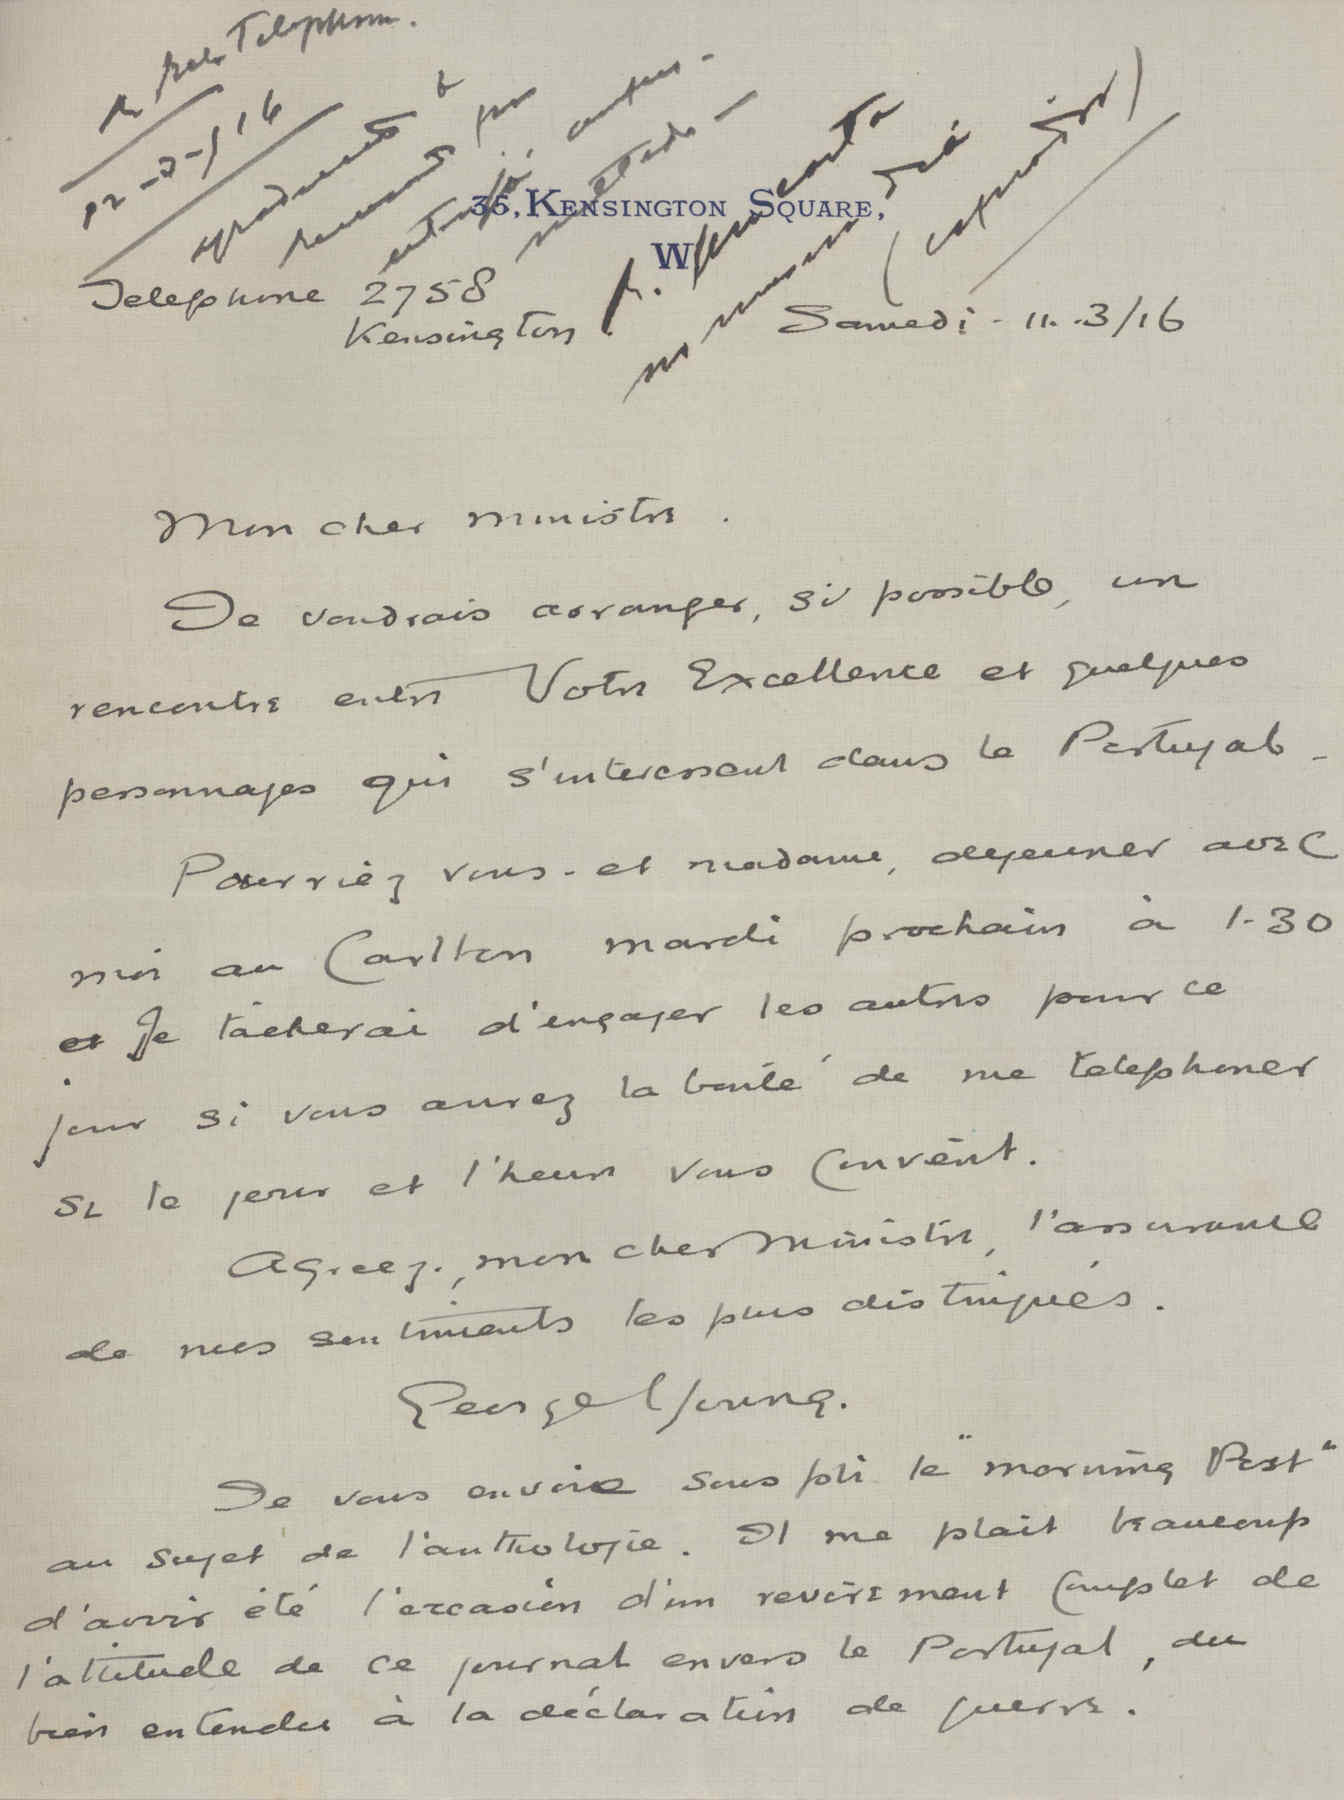 Telephone.
12-3-916
36, KENSINGTON SQUARE,
W
Telephone 2758
Kensington.
Samedi - 11.-3/16
Mon cher ministre.
Je voudrais arranger, si possible, un
rencontre entre Votre Excellence et quelques
personnages qui s'interessent dans le Portugal -
Pourriez vous - et madame, dejeuner avec
moi au Carlton mardi prochain à 1-30
et Je tâcherai d'engager les autres pour ce
jour si vous aurez la bonté de me telephoner
si le jour et l'heure vous convent.
Agreez, mon cher Ministre, l'assurance
de mes sentiments les plus distingués.
George Young.
Je vous envoie sous pli le "morning Post"
au sujet de l'anthologie. Il me plait beaucoup
d'avoir été l'occasion d'un revirement complet de
l'attitude de ce journal envers le Portugal, du
bien entendu à la déclaration de guerre.